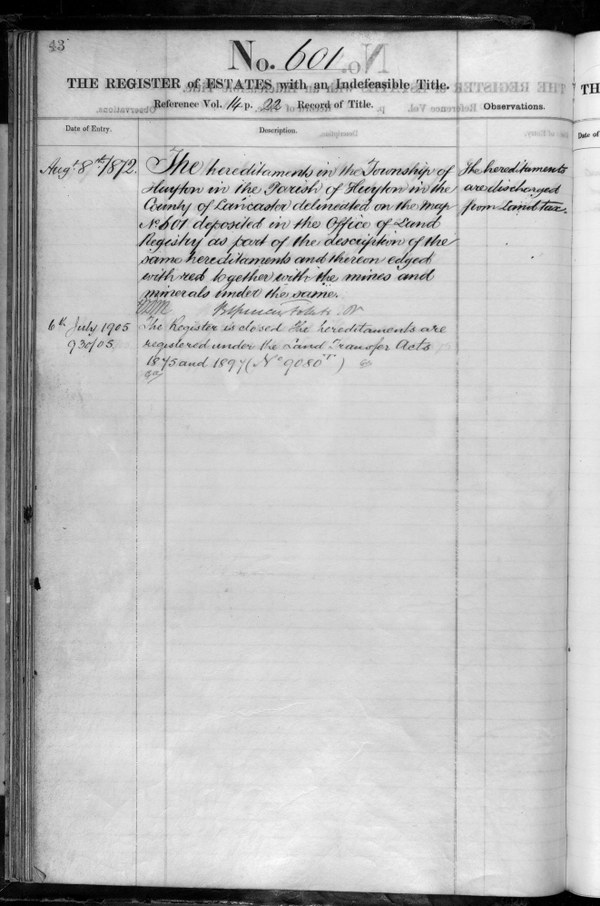 43
No. 601
THE REGISTER of ESTATES with an Indefeasible Title.
Reference Vol. 14 p. 22 Record of Title.
Observations.
Date of Entry.
Description.
Augt 8th 1872.
The hereditaments in the Township of
Huyton in the Parish of Huyton in the
County of Lancaster delineated on the Map
No 601 deposited in the Office of Land
Registry as part of the description of the
same hereditaments and thereon edged
with red together with the mines and
minerals under the same.
The hereditaments
are discharged
from Land tax.
6th July 1905
930/05
The Register is closed The hereditaments are
registered under the Land Transfer Acts
1875 and 1897 (No 9080)
THE
Date of